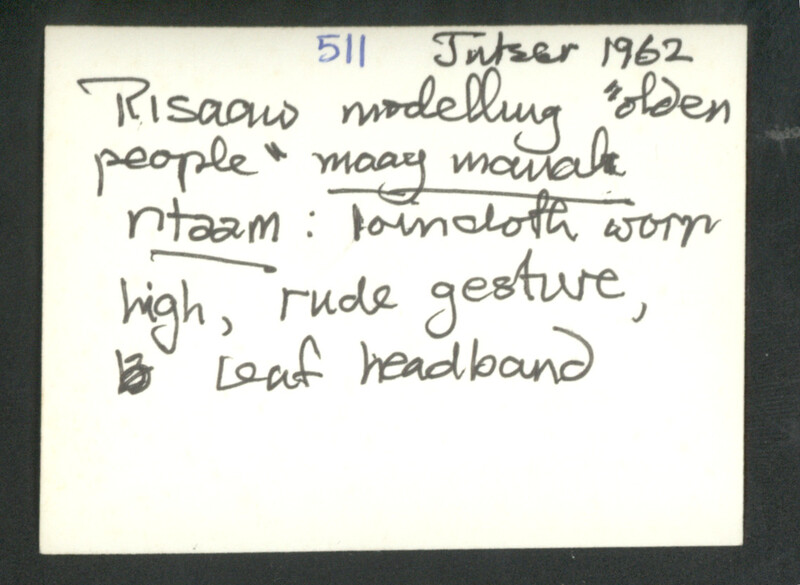 511 Intser 1962
Risaaw modelling "olden
people" maay mawak
ntaam : loincloth worn
high, rude gesture,
Leaf headband